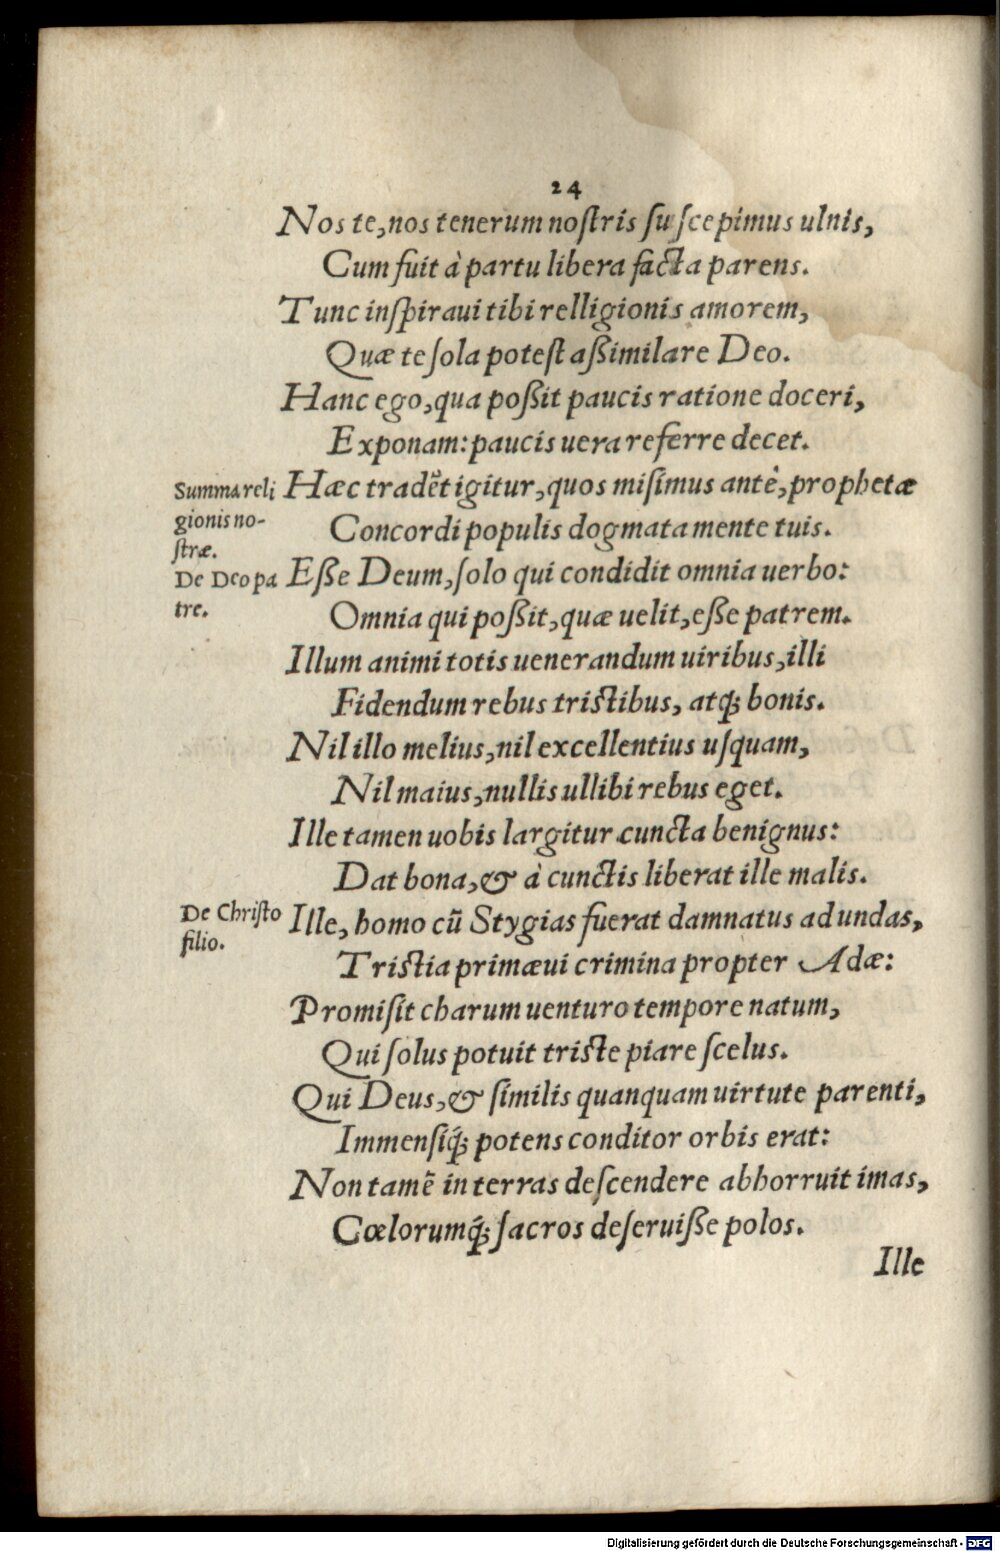 24
Nos te, nos tenerum noſtris ſuſcepimus ulnis,
Cum fuit à partu libera facta parens.
Tunc inſpiraui tibi relligionis amorem,
Quæ te ſola poteſt aßimilare Deo.
Hanc ego, qua poßit paucis ratione doceri,
Exponam: paucis uera referre decet.
Summa reli
gionis no-
ſtræ.
Hæc tradẽt igitur, quos miſimus antè, prophetæ
Concordi populis dogmata mente tuis.
De Deo pa
tre.
Eße Deum, ſolo qui condidit omnia uerbo:
Omnia qui poßit, quæ uelit, eße patrem.
Illum animi totis uenerandum uiribus, illi
Fidendum rebus triſtibus, atq́; bonis.
Nil illo melius, nil excellentius uſquam,
Nil maius, nullis ullibi rebus eget.
Ille tamen uobis largitur cuncta benignus:
Dat bona, & à cunctis liberat ille malis.
De Chriſto
filio.
Ille, homo cũ Stygias fuerat damnatus ad undas,
Triſtia primæui crimina propter Adæ:
Promiſit charum uenturo tempore natum,
Qui ſolus potuit triſte piare ſcelus.
Qui Deus, & ſimilis quanquam uirtute parenti,
Immenſiq́; potens conditor orbis erat:
Non tamẽ in terras deſcendere abhorruit imas,
Cœlorumq́; ſacros deſeruiße polos.
Ille
Digitalisierung gefördert durch die Deutsche Forschungsgemeinschaft - DFG